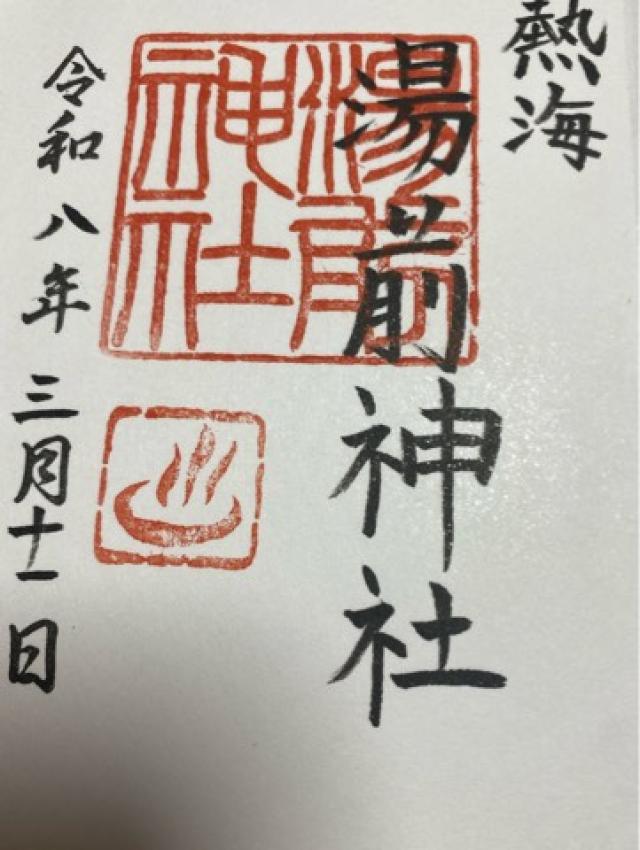 熱海
湯前神社
湯前神社
令和八年三月十一日